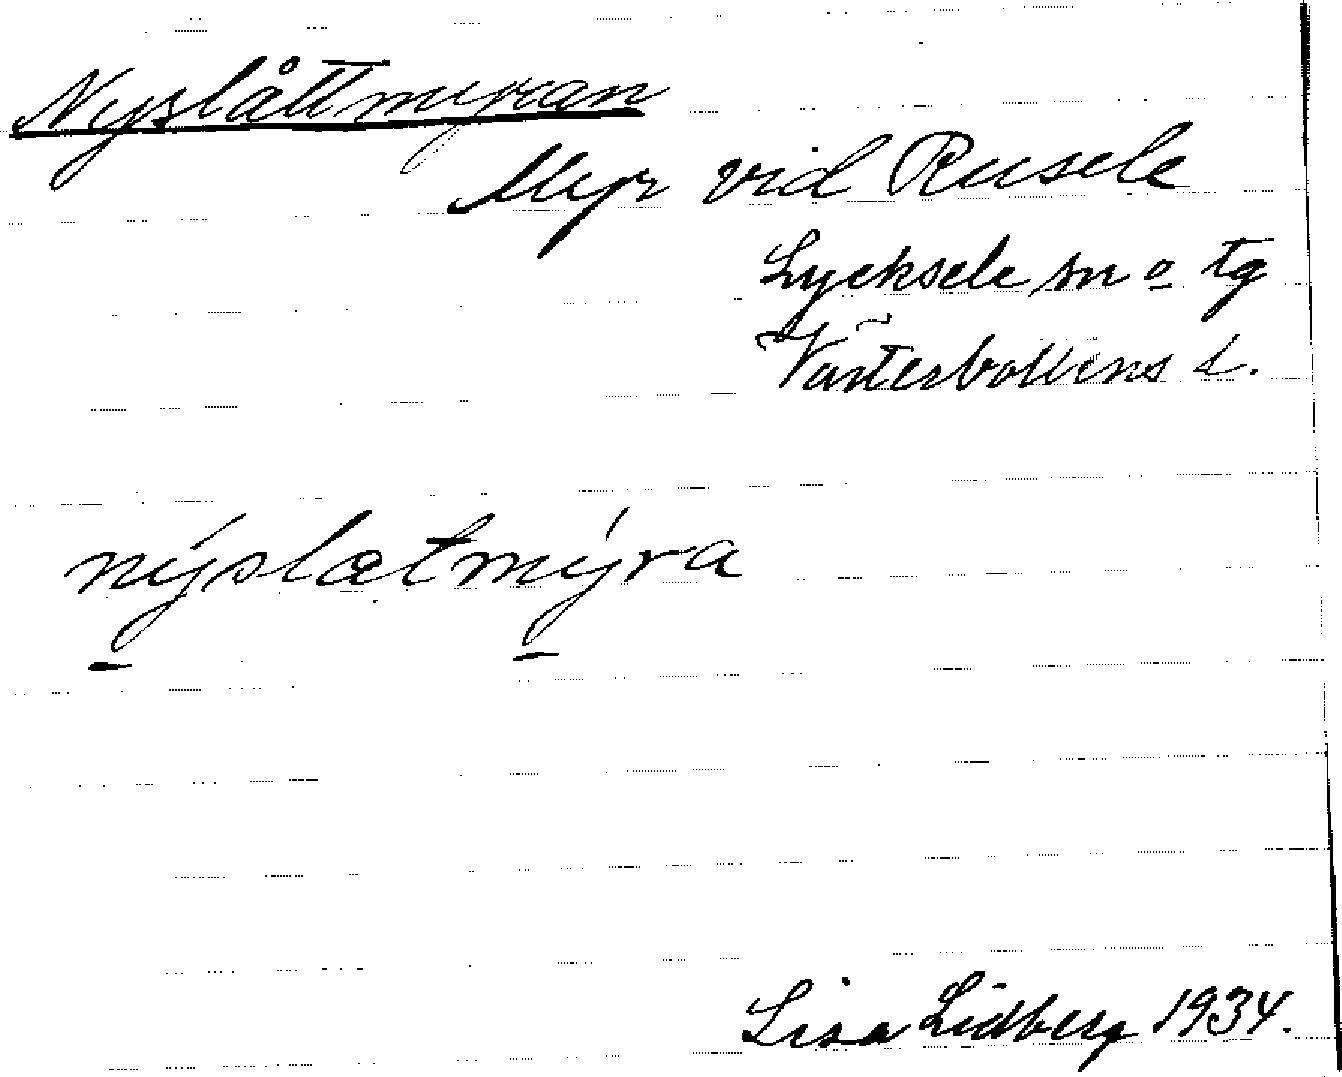 Nyslåttmyran
Myr vid Rusele
Lycksele sn o tg
Västerbottens l.
nýslætmýra
Lisa Lidberg 1934.